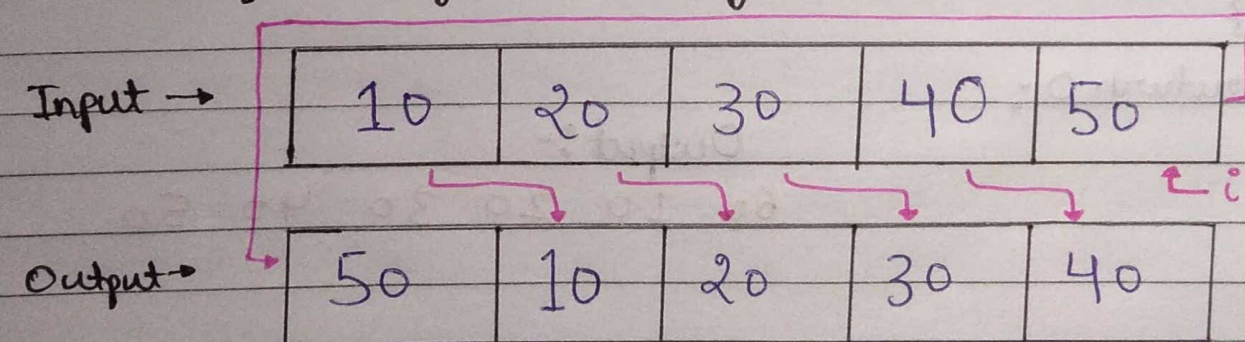 Input → 10 20 30 40 50
i
Output → 50 10 20 30 40